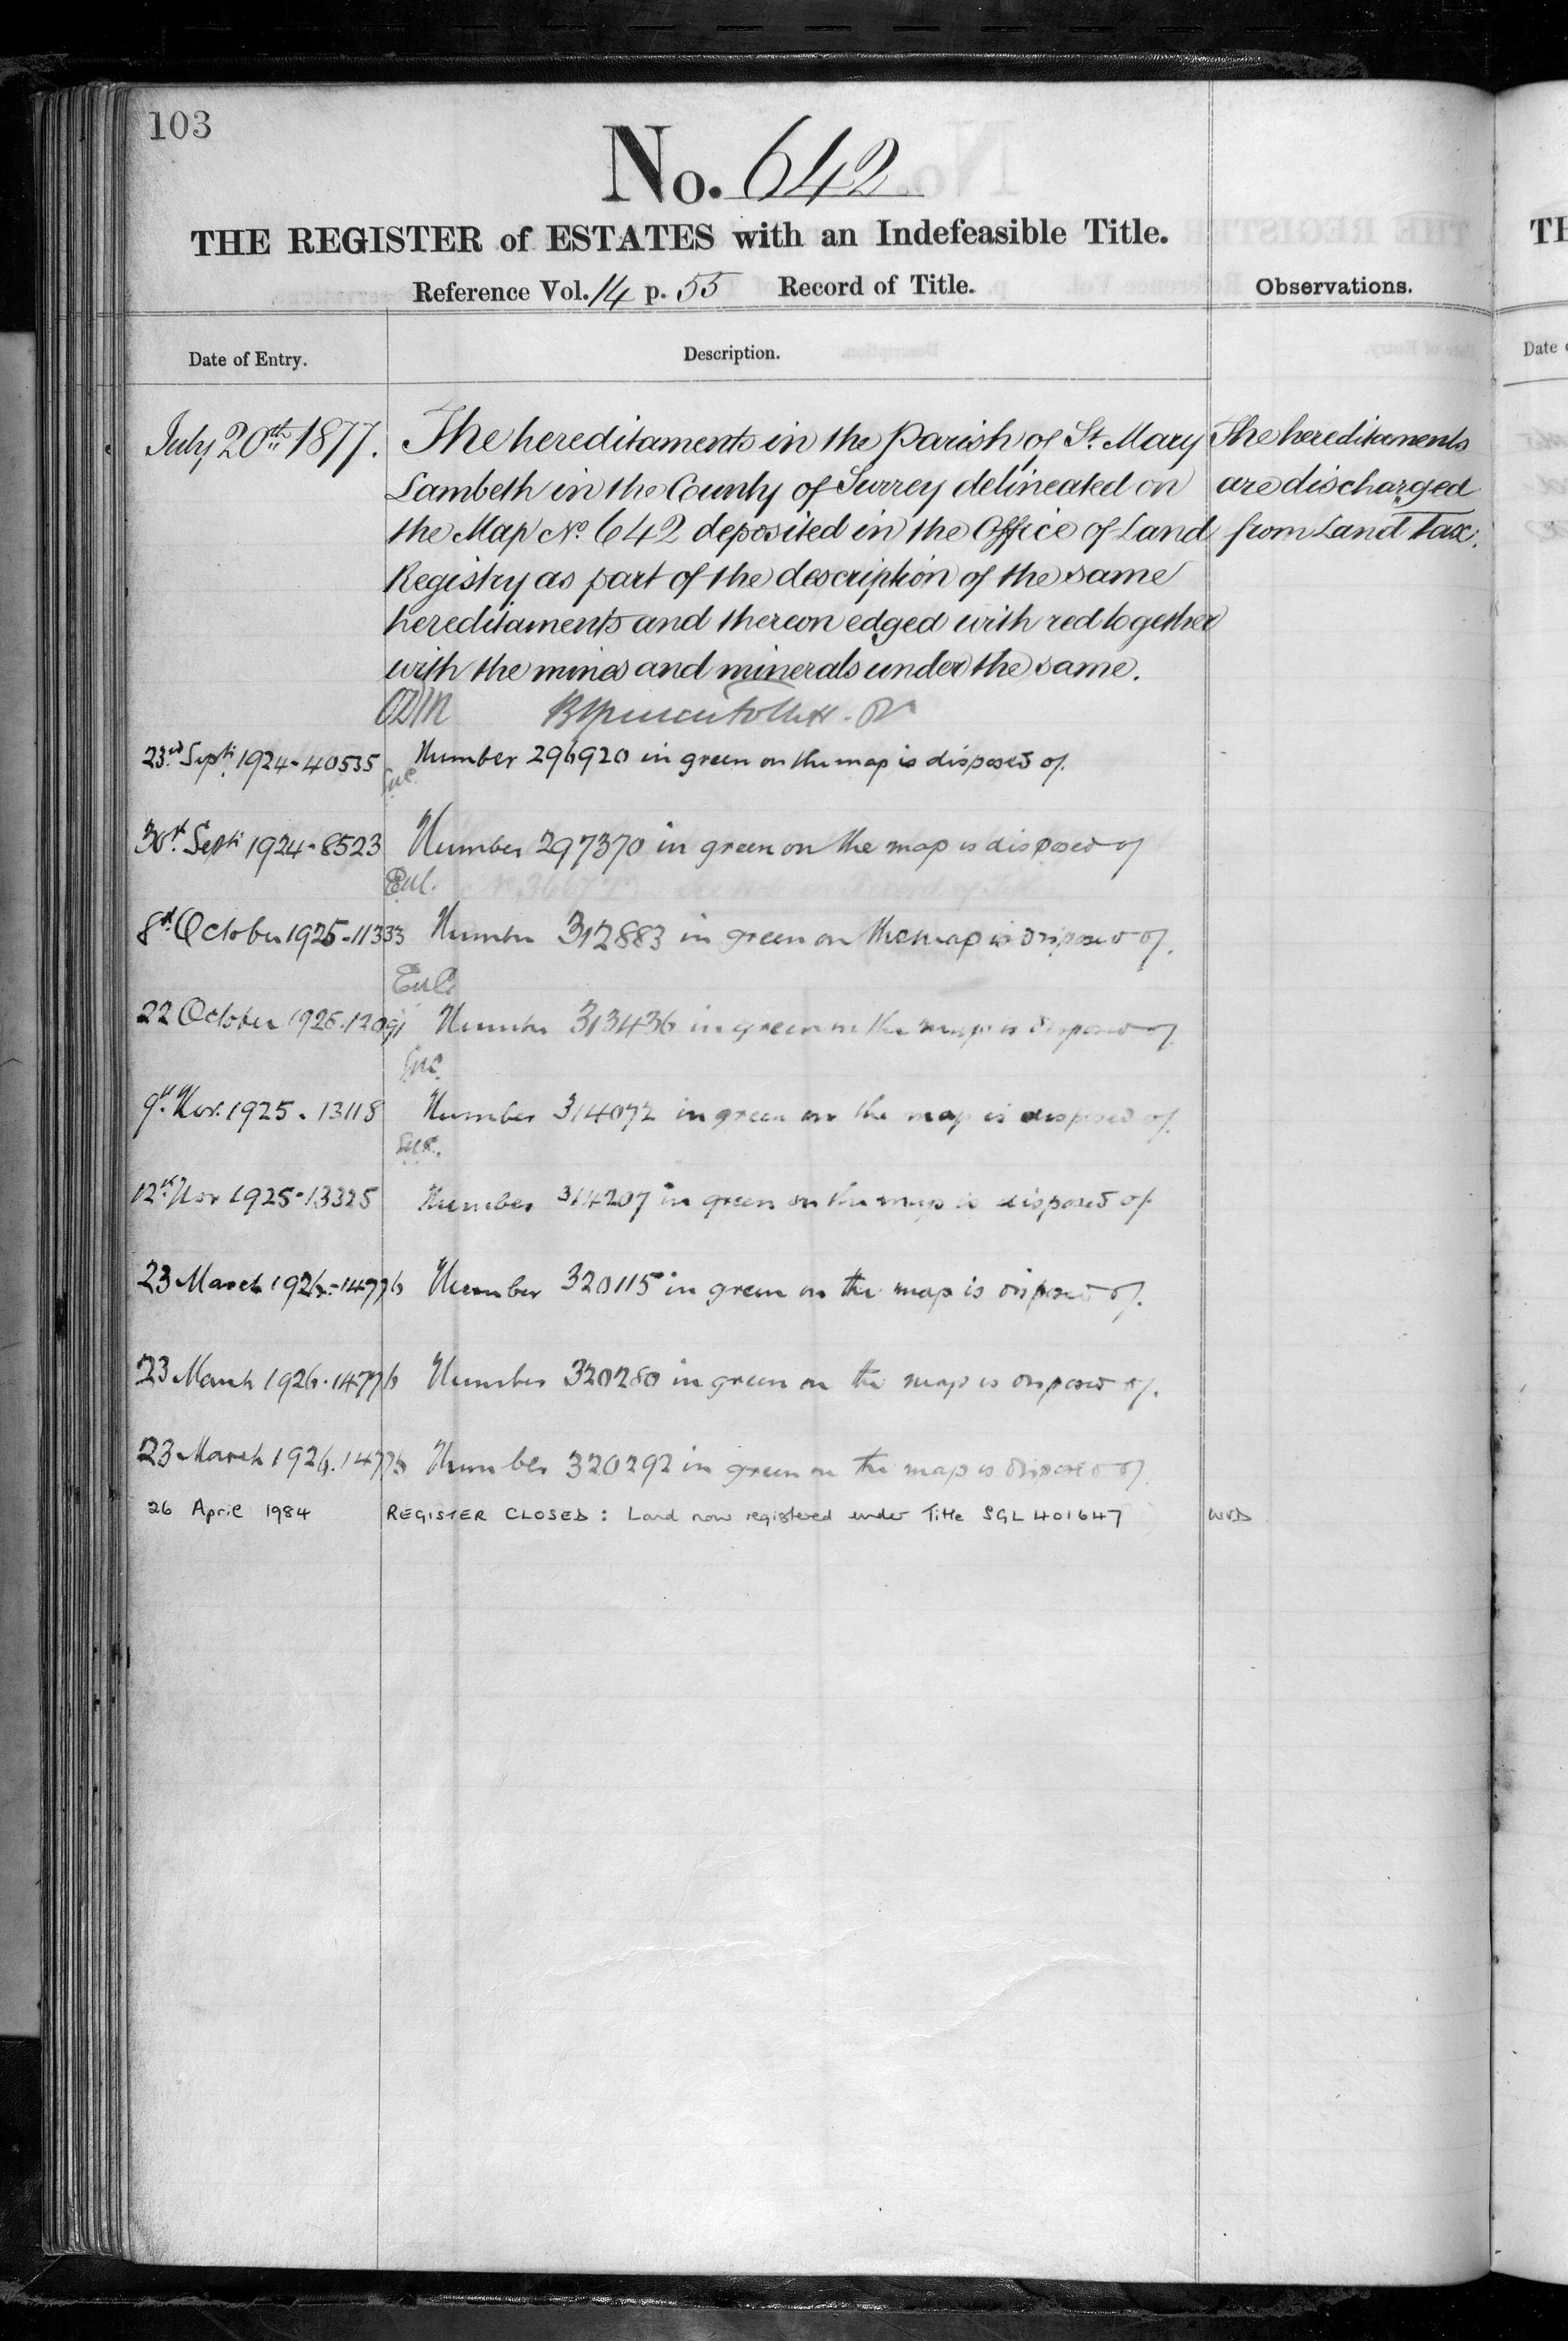 103
No. 642
THE REGISTER of ESTATES with an Indefeasible Title.
Reference Vol. 14 p. 55 Record of Title.
Observations.
Date of Entry.
Description.
July 20th 1877.
The hereditaments in the Parish of St. Mary
Lambeth in the County of Surrey delineated on
the Map No. 642 deposited in the Office of Land
Registry as part of the description of the same
hereditaments and thereon edged with red together
with the mines and minerals under the same.
The hereditaments
are discharged
from Land Tax.
23rd Sept. 1924-40535 Number 296920 in green on the map is disposed of.
30th Sept. 1924-8523 Number 297370 in green on the map is disposed of
8th October 1925-11333 Number 312883 in green on the map is disposed of.
22 October 1925.12091 Number 313436 in green on the map is disposed of
9th Nov. 1925. 13118 Number 314072 in green on the map is disposed of.
12th Nov 1925-13325 Number 314207 in green on the map is disposed of
23 March 1926-14776 Number 320115 in green on the map is disposed of.
23 March 1926.14776 Number 320280 in green on the map is disposed of.
23 March 1926.14776 Number 320292 in green on the map is disposed of
26 April 1984 REGISTER CLOSED : Land now registered under Title SGL 401647
TH
Date